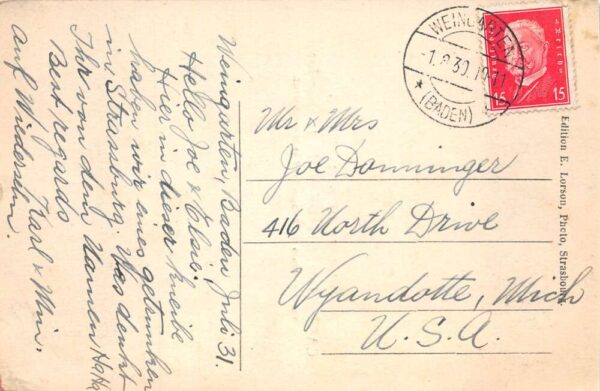 Weingarten, Baden Juli 31.
Hello Joe & Elsie.
Hier in dieser Kneibe
haben wir eines getrunken
in Strassburg. Was denkt
Ihr von dem Namen HaHa
Best regards
Karl & Min.
Auf Wiedersehn.
WEINGARTEN
-1.8.30.
* (BADEN)
15 15
Mr & Mrs
Joe Donninger
416 North Drive
Wyandotte, Mich
U.S.A.
Edition E. Lorson, Photo, Strasbourg